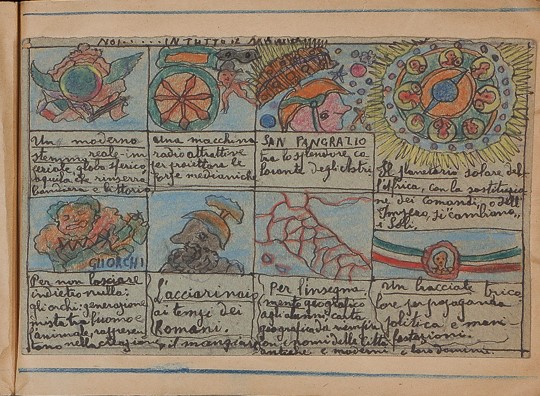 NOI.....IN TUTTO IL
Un moderno
stemma reale-im
periale globo sferico
aquila che rinserra
bandiera e littorio
Una macchina
radio attrattove
per proiettare le
forze medianiche
SAN PANGRAZIO
tra lo splendore co
lorante degli Astri
Il planetario solare del
l'Africa, con la sostituzio
ne dei Comandi o dell'
Impero, si cambiano
i Soli.
GLI ORCHI
Per non lasciare
indietro nulla:
gli orchi: generazione
mista tra l'uomo e
l'animale, rappresen
tano nella creazione
il mangiare
L'acciarinaio
ai tempi dei
Romani.
Per l'insegna
mento geografico
agli alunni: carta
geografica da riempire
con i nomi delle città
antiche e moderne e loro domini
Un bracciale trico
lore per propaganda
politica e mani
festazioni.